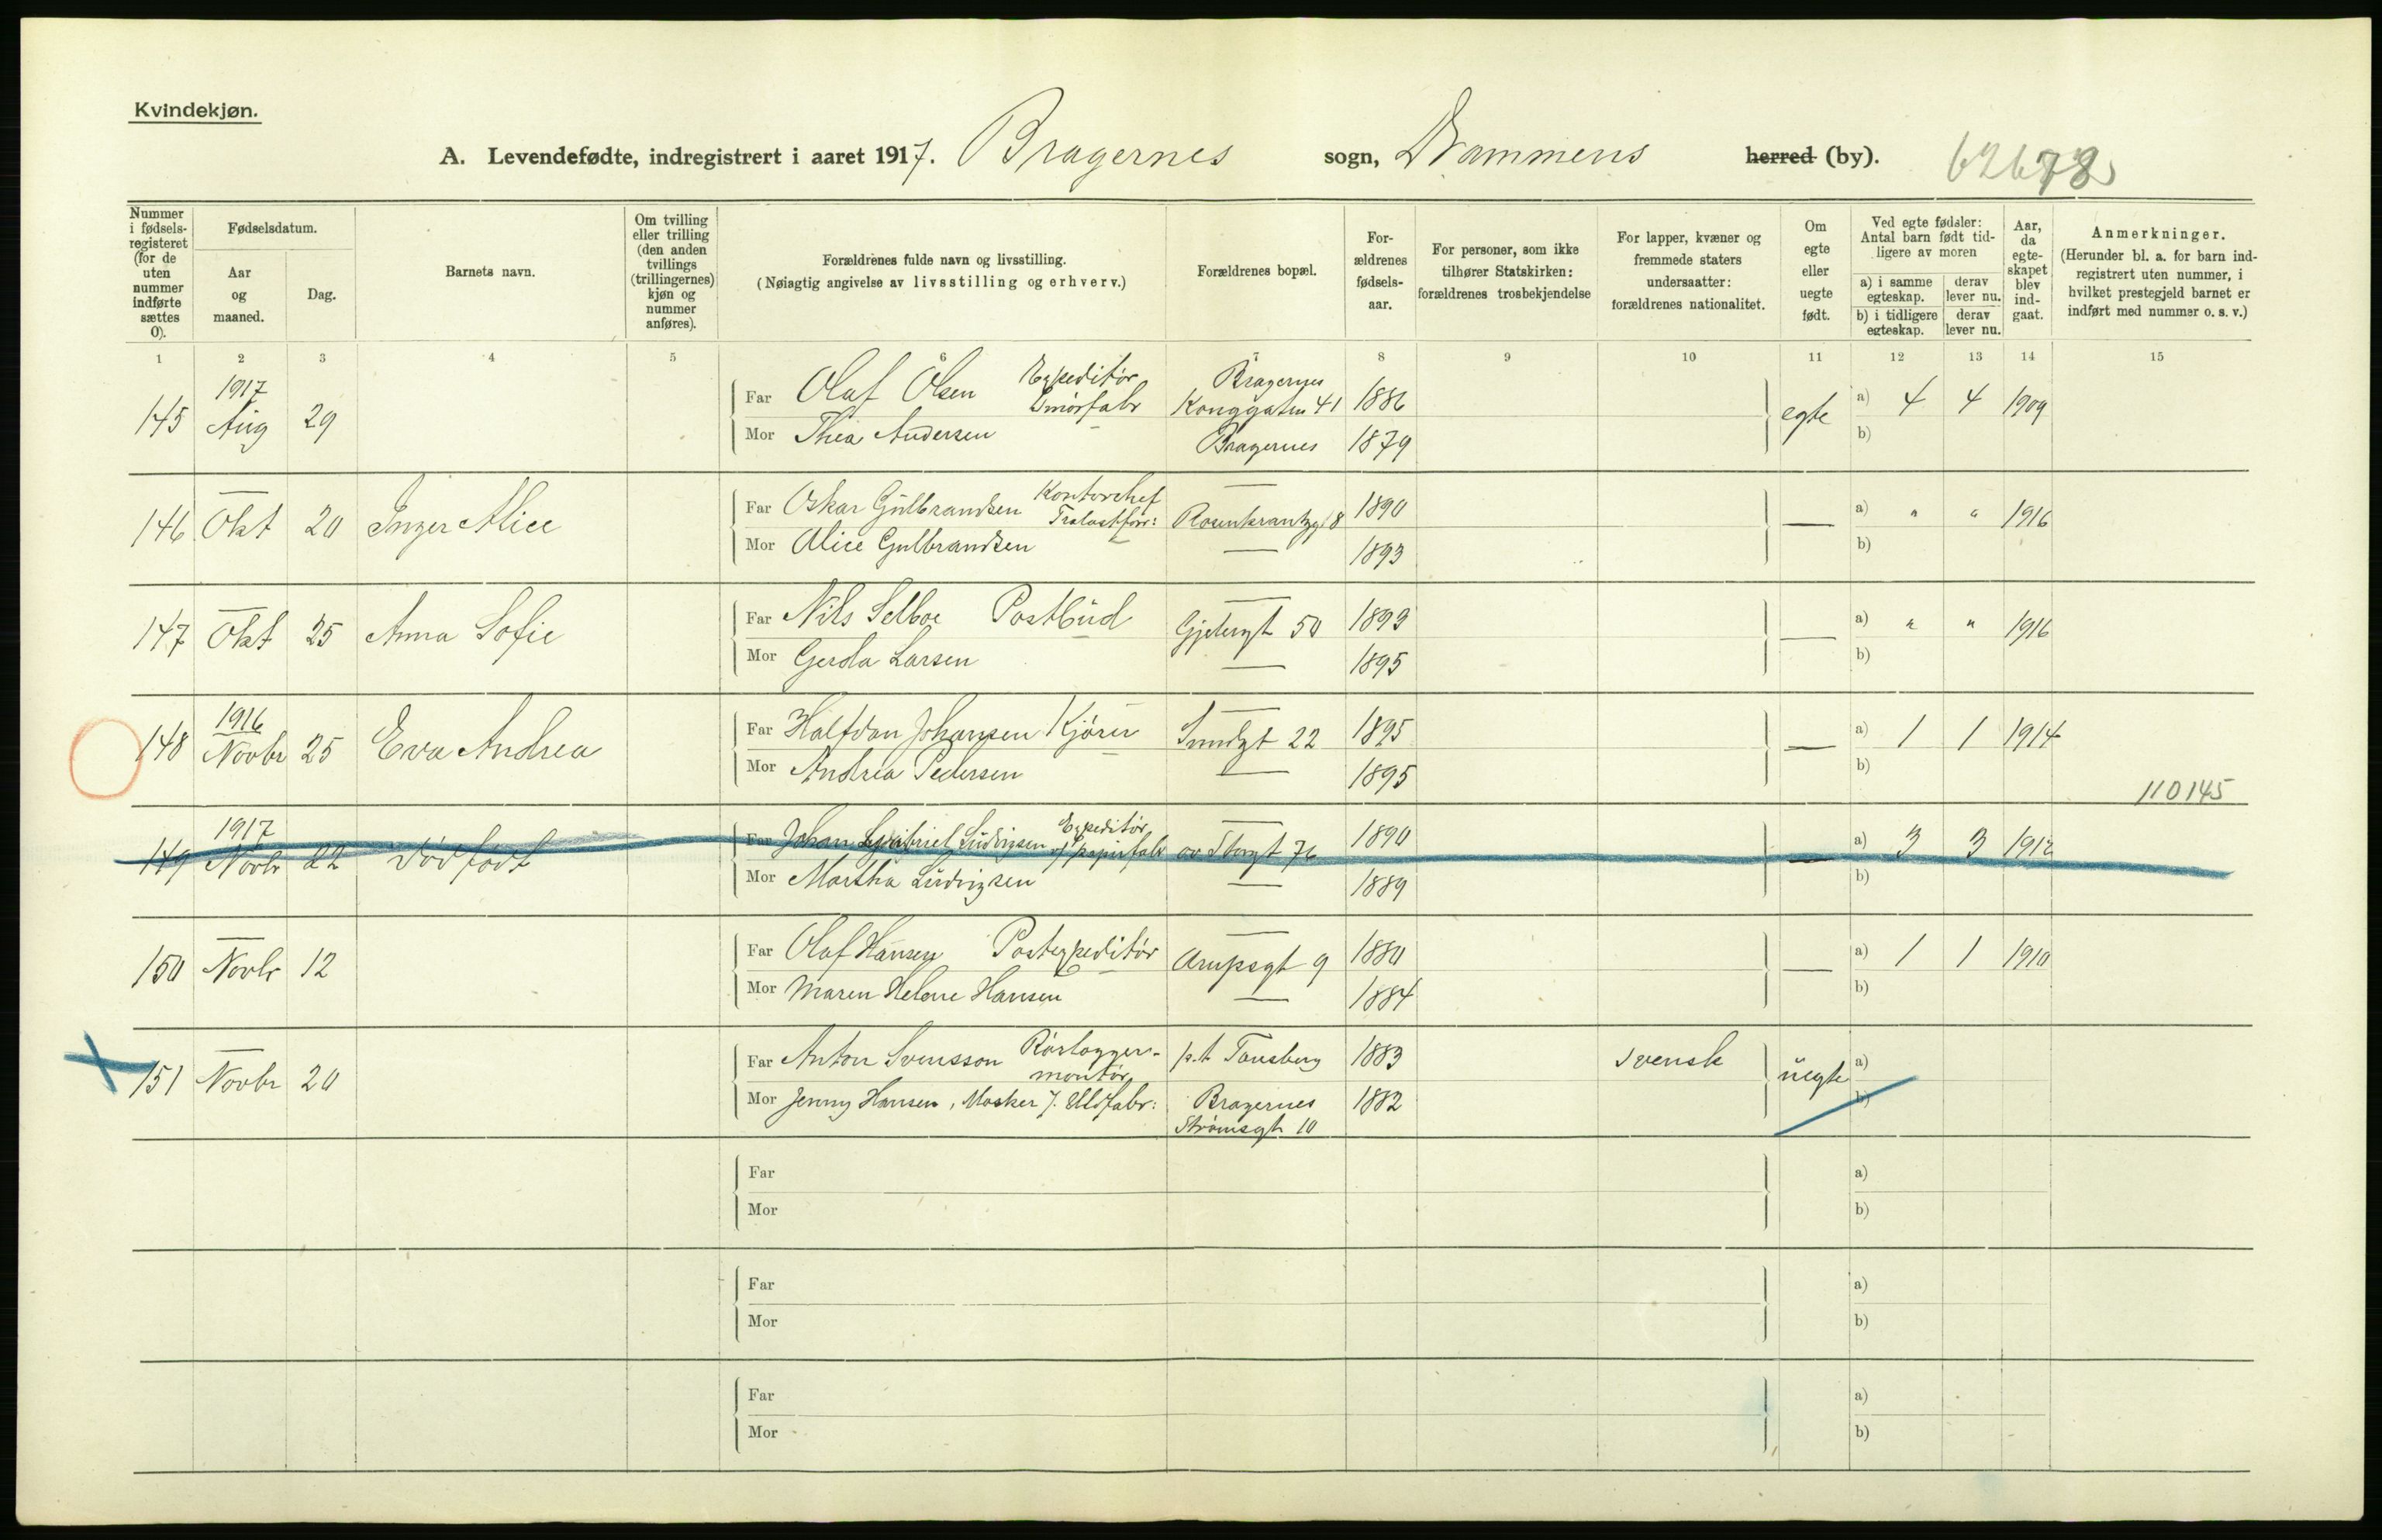 Kvindekjøn.
A. Levendefødte, indregistrert i aaret 1917. Bragernes sogn, Drammens herred (by).
Nummer i fødsels-registeret (for de uten nummer indførte sættes 0).
Fødselsdatum.
Aar og maaned.
Dag.
Barnets navn.
Om tvilling eller trilling (den anden tvillings (trillingernes) kjøn og nummer anføres).
Forældrenes fulde navn og livsstilling.
(Nøiagtig angivelse av livsstilling og erhverv.)
Forældrenes bopæl.
For-ældrenes fødsels-aar.
For personer, som ikke tilhører Statskirken: forældrenes trosbekjendelse
For lapper, kvæner og fremmede staters undersaatter: forældrenes nationalitet.
Om egte eller uegte født.
Ved egte fødsler: Antal barn født tid-ligere av moren
a) i samme egteskap. derav lever nu.
b) i tidligere egteskap. derav lever nu.
Aar, da egte-skapet blev ind-gaat.
Anmerkninger.
(Herunder bl. a. for barn ind-registrert uten nummer, i hvilket prestegjeld barnet er indført med nummer o. s. v.)
1 2 3 4 5 6 7 8 9 10 11 12 13 14 15
145 1917 Aug 29 Far Olaf Olsen Expeditør Smørfabr Bragernes Konggaten 41 1886 egte a) 4 4 1909
Mor Thea Andersen Bragernes 1879 b)
146 — Okt 20 Inger Alice Far Oskar Gulbrandsen Kontorchef Trælastforr: — Rosenkrantzgt 8 1890 — a) " " 1916
Mor Alice Gulbrandsen — 1893 b)
147 — Okt 25 Anna Sofie Far Nils Selboe Postbud — Gjetergt 50 1893 — a) " " 1916
Mor Gerda Larsen — 1895 b)
148 1916 Novbr 25 Eva Andrea Far Halfdan Johansen Kjører — Sundgt 22 1895 — a) 1 1 1914
Mor Andrea Pedersen — 1895 b)
110145
149 1917 Novbr 22 Dødfødt Far Johan Gabriel Ludvigsen Expeditør v/ papirfabr — øv Storgt 76 1890 — a) 3 3 1912
Mor Martha Ludvigsen — 1889 b)
150 — Novbr 12 Far Olaf Hansen Postexpeditør — Arupsgt 9 1880 — a) 1 1 1910
Mor Maren Helene Hansen — 1884 b)
151 — Novbr 20 Far Anton Svensson Rørlægger-montør p.t Tønsberg 1883 svensk uegte a)
Mor Jenny Hansen, Masker f. Uldfabr: Bragernes Strømsgt 10 1882 b)
Far a)
Mor b)
Far a)
Mor b)
Far a)
Mor b)